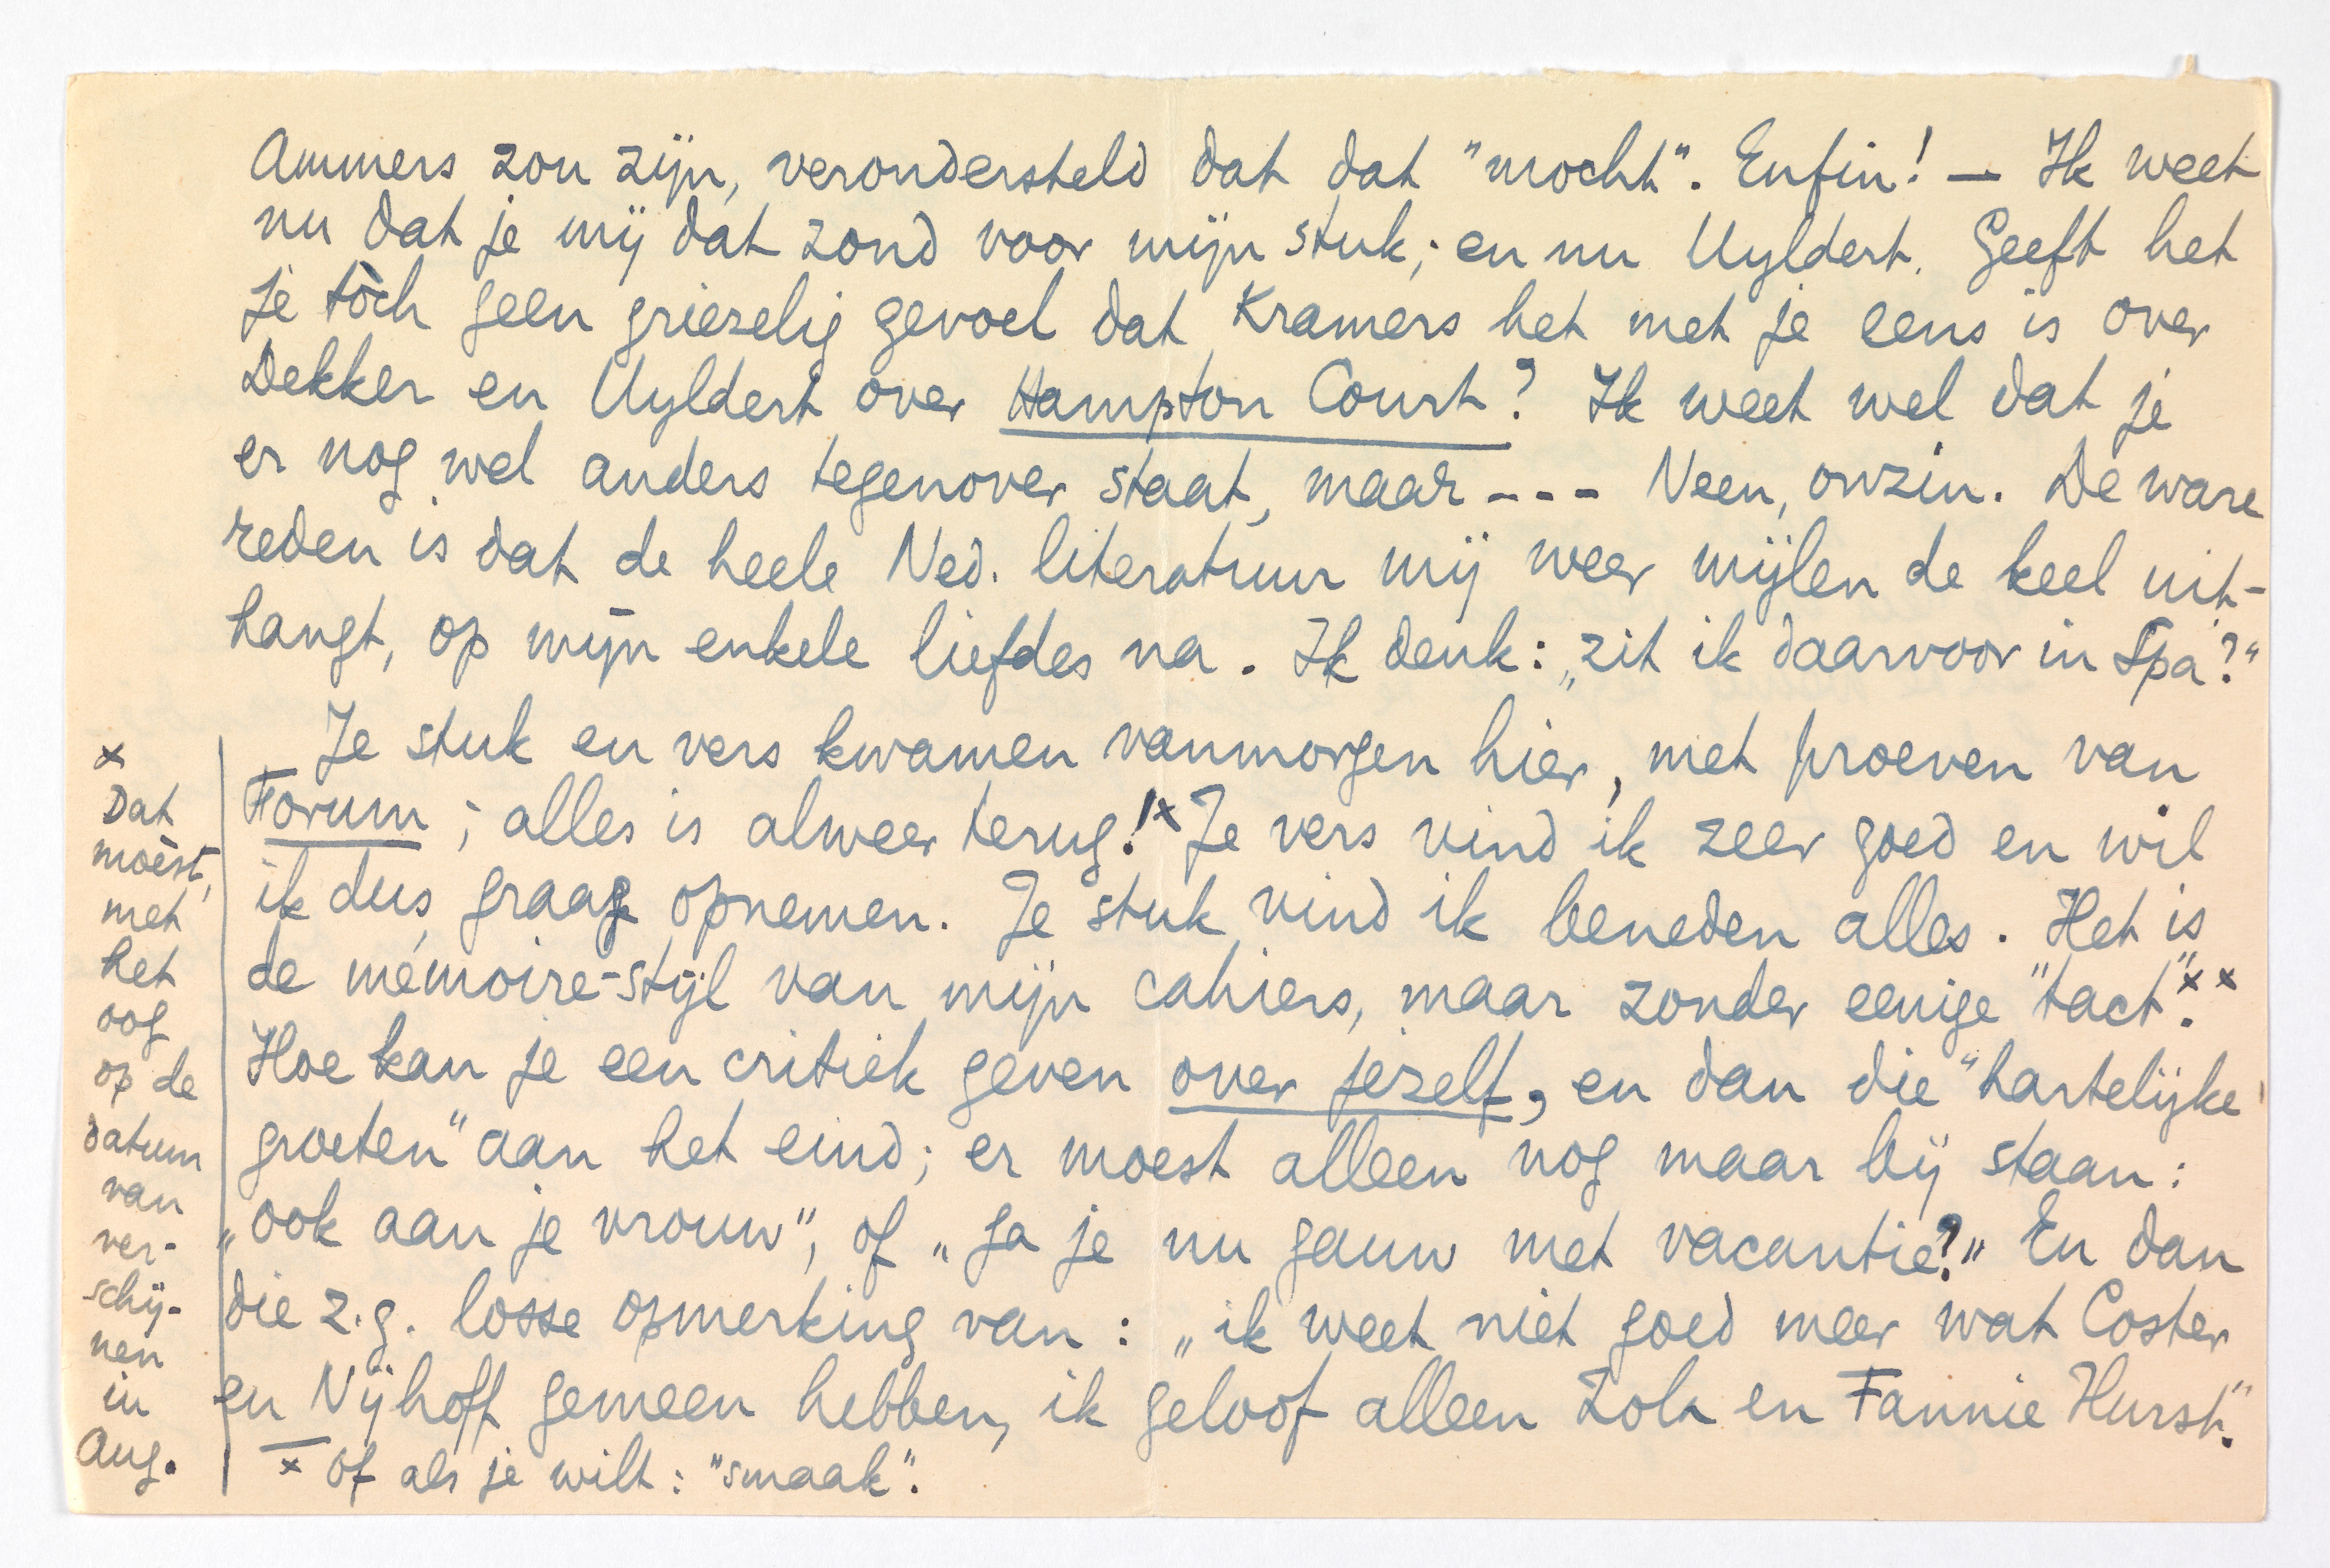 Ammers zou zijn, verondersteld dat dat "mocht". Enfin! — Ik weet
nu dat je mij dat zond voor mijn stuk; en nu Uyldert. Geeft het
je tòch geen griezelig gevoel dat Kramers het met je eens is over
Dekker en Uyldert over Hampton Court? Ik weet wel dat je
er nog wel anders tegenover staat, maar - - - Neen, onzin. De ware
reden is dat de heele Ned. literatuur mij weer mijlen de keel uit-
hangt, op mijn enkele liefdes na. Ik denk: „zit ik daarvoor in Spa?"
Je stuk en vers kwamen vanmorgen hier, met proeven van
Forum; alles is alweer terug!x Je vers vind ik zeer goed en wil
ik dus graag opnemen. Je stuk vind ik beneden alles. Het is
de mémoire-stijl van mijn cahiers, maar zonder eenige "tact".x x
Hoe kan je een critiek geven over jezelf, en dan die "hartelijke
groeten" aan het eind; er moest alleen nog maar bij staan:
„ook aan je vrouw", of „ga je nu gauw met vacantie?" En dan
die z.g. losse opmerking van: „ik weet niet goed meer wat Coster
en Nijhoff gemeen hebben, ik geloof alleen Zola en Fannie Hurst."
x of als je wilt: "smaak".
x
Dat
moèst,
met
het
oog
op de
datum
van
ver-
schij-
nen
in
Aug.